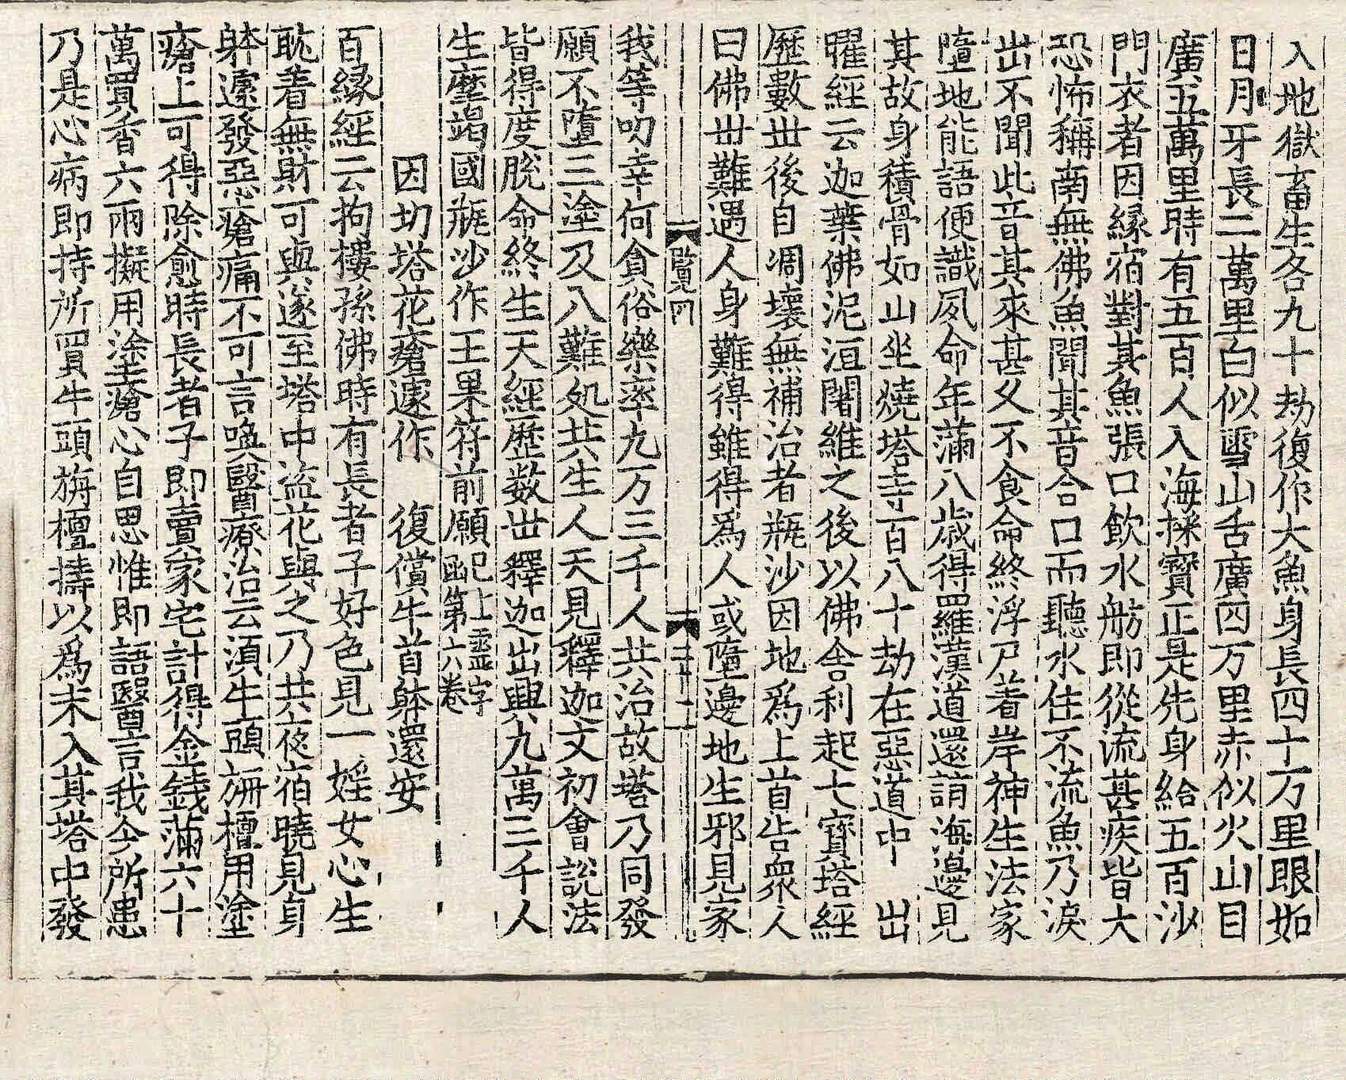 入地獄畜生各九十劫復作大魚身長四十万里眼如
日月牙長二萬里白似雪山舌廣四万里赤似火山目
廣五萬里時有五百人入海採寶正是先身給五百沙
門衣者因緣宿對其魚張口飲水舫即從流甚疾皆大
恐怖稱南無佛魚聞其音合口而聽水住不流魚乃淚
出不聞此音其來甚久不食命終浮尸著岸神生法家
墮地能語便識夙命年蒲八歲得羅漢道還詣海邊見
其故身積骨如山坐燒塔寺一百八十劫在惡道中 出
曜經云迦葉佛泥洹闍維之後以佛舍利起七寶塔經
歷數世後自凋壞無補治者瓶沙因地爲上首告衆人
曰佛世難遇人身難得雖得爲人或墮邊地生邪見家
覽四 三十二
我等叨幸何貪俗樂率九万三千人共治故塔乃同發
願不墮三塗及八難処共生人天見釋迦文初會說法
皆得度脫命終生天經歷数世釋迦出興九萬三千人
生摩竭國瓶沙作王果符前願 已上靈字函第六卷
因切塔花瘡遽作 復償牛首躰還安
百縁經云拘摟孫佛時有長者子好色見一婬女心生
耽着無財可與遂至塔中盜花與之乃共夜宿曉見身
躰遽發惡瘡痛不可言喚醫療治云湏牛頭旃檀用塗
瘡上可得除愈時長者子即賣家宅計得金錢蒲六十
萬買香六兩擬用塗瘡心自思惟即語醫言我今所患
乃是心病即持所買牛頭旃檀擣以爲末入其塔中發